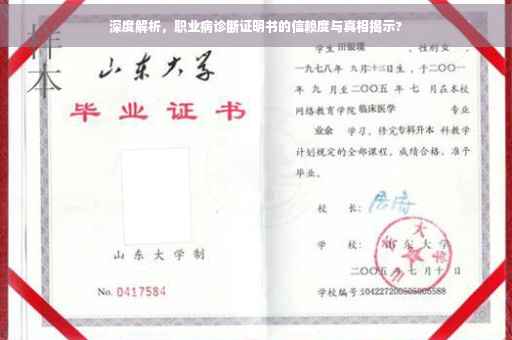 深度解析，职业病诊断证明书的信赖度与真相揭示？
样本
山东大学
毕业证书
山东大学制
No. 0417584
学生田银瑞，性别女，
一九七八年九月十三日生，于二〇〇一
年九月至二〇〇五年七月在本校
网络教育学院临床医学专业
业余学习，修完专科升本科教学
计划规定的全部课程，成绩合格，准予
毕业。
校长：
学校：山东大学
二〇〇五年七月十日
学校编号：104227200505005588